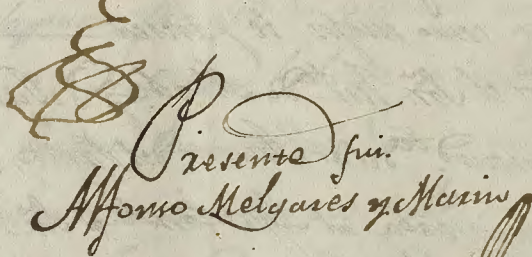 Presente fui.
Alfonso Melgares y Marin